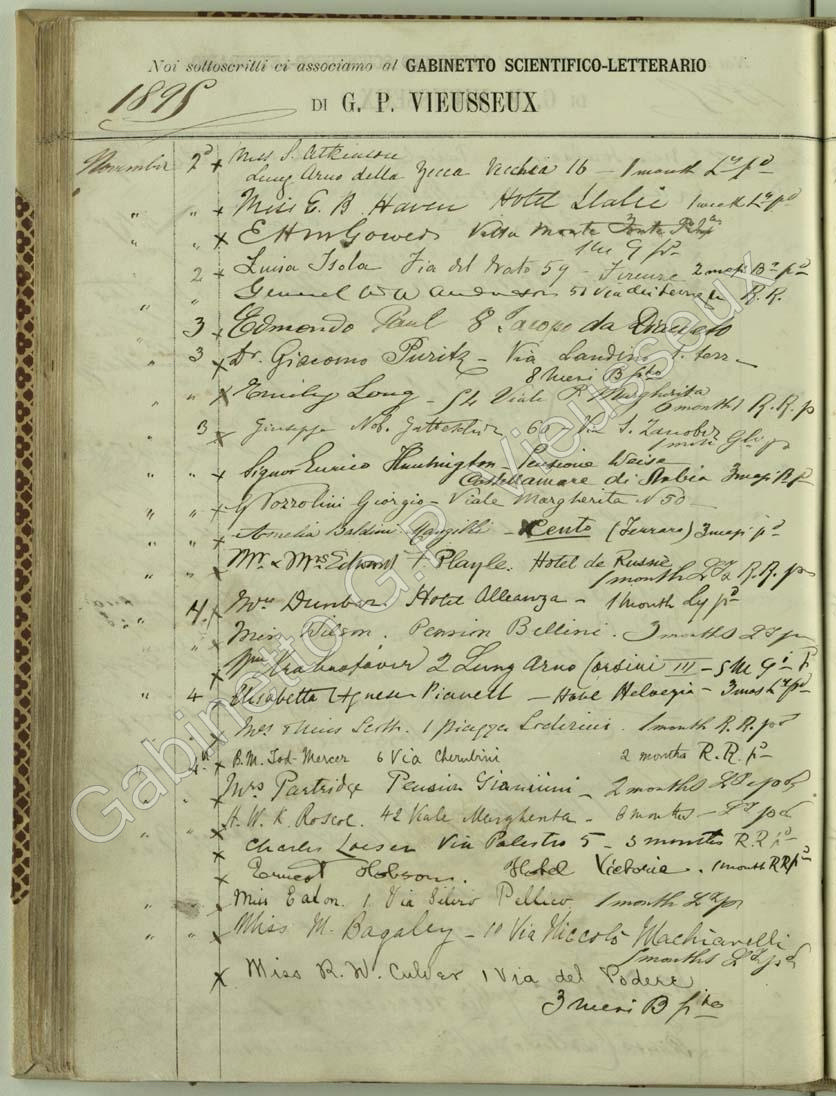 Noi sottoscritti ci associamo al GABINETTO SCIENTIFICO-LETTERARIO
1895
DI G. P. VIEUSSEUX
November 2d x Miss S. Atkinson
Lung Arno della Zecca Vecchia 16 - 1 month pd
" " x Miss E. B. Haven Hotel Italie 1 week pd
" " x E Villa Monte
1 M G pd
2 x Luisa Isola Via del Prato 59 - Firenze 2 mesi B pd
" " General 51 Via dei R. R.
" 3 x Edmondo Paul 8 Jacopo da Diacceto
" 3 x Dr. Giacomo Puritz - Via Landino t. terr
8 mesi B pto
" " x Emily Long - 54 Viale P. Margherita
6 months R. R. p
3 x Giuseppe Nob. 66 - Via S. Zanobi
1 mese p
" " x Signor Enrico Huntington Pensione Weiss
Castellamare di Stabia 3 mesi p
" " x Nozzolini Giorgio - Viale Margherita N 50 -
" " x Amelia Baldini - Cento (Ferrara) 3 mesi pd
" " x Mr. & Mrs Edward F Playle. Hotel de Russie
1 month R. R. p
4. x Mrs Dunbar. Hotel Alleanza - 1 month pd
x Miss Wilson. Pension Bellini. 3 months
x Wm 2 Lung Arno Corsini III - 5 M G
" 4 - x Elisabetta Agnese - Hotel Helvezia - 3 mos pd
x Mrs & Miss Scott. 1 Piazza Soderini. 1 month R. R. pd
" 4 x B. M. Tod-Mercer 6 Via Cherubini 2 months R. R. pd
" " x Mrs Partridge Pension Giannini - 2 months pd
" " x H. W. K. Roscoe. 42 Viale Margherita - 6 months - pd
x Charles Loeser Via Palestro 5 - 3 months R. R pd
x Ernest Hobson. Hotel Victoria. 1 month RR pd
" " x Miss Eaton. 1 Via Silvio Pellico 1 month
" " x Miss M. Bagaley - 10 Via Niccolò Machiavelli
months pd
x Miss R. W. Culver 1 Via del Podere
3 mesi B pto
Gabinetto G.P. Vieusseux